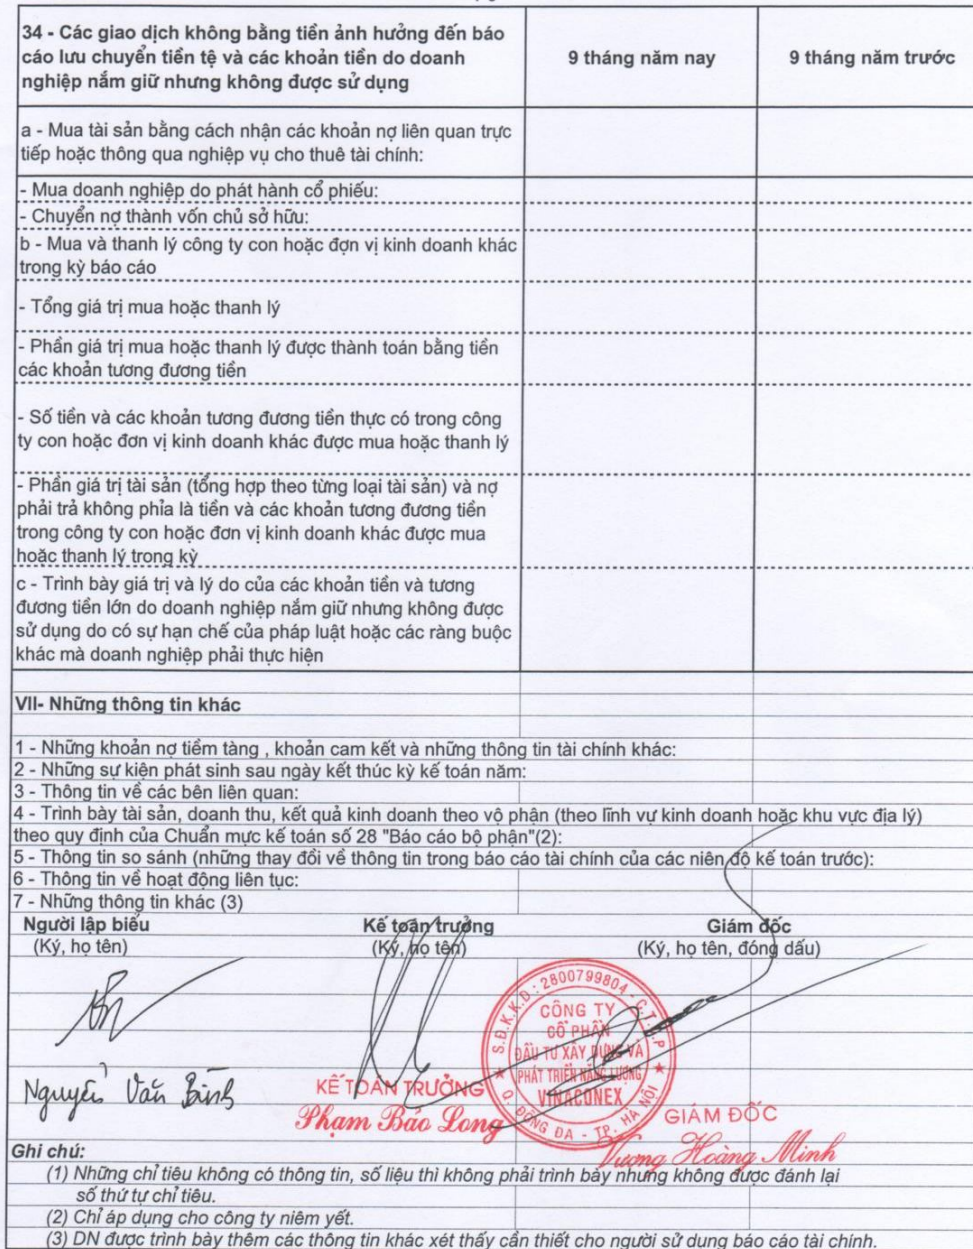 34 - Các giao dịch không bằng tiền ảnh hưởng đến báo
cáo lưu chuyển tiền tệ và các khoản tiền do doanh
nghiệp nắm giữ nhưng không được sử dụng
9 tháng năm nay
9 tháng năm trước
a - Mua tài sản bằng cách nhận các khoản nợ liên quan trực
tiếp hoặc thông qua nghiệp vụ cho thuê tài chính:
- Mua doanh nghiệp do phát hành cổ phiếu:
- Chuyển nợ thành vốn chủ sở hữu:
b - Mua và thanh lý công ty con hoặc đợn vị kinh doanh khác
trong kỳ báo cáo
- Tổng giá trị mua hoặc thanh lý
- Phần giá trị mua hoặc thanh lý được thành toán bằng tiền
các khoản tương đương tiền
- Số tiền và các khoản tương đương tiền thực có trong công
ty con hoặc đơn vị kinh doanh khác được mua hoặc thanh lý
- Phần giá trị tài sản (tổng hợp theo từng loại tài sản) và nợ
phải trả không phĩa là tiền và các khoản tương đương tiền
trong công ty con hoặc đơn vị kinh doanh khác được mua
hoặc thanh lý trong kỳ
c - Trình bày giá trị và lý do của các khoản tiền và tương
đương tiền lớn do doanh nghiệp nắm giữ nhưng không được
sử dụng do có sự hạn chế của pháp luật hoặc các ràng buộc
khác mà doanh nghiệp phải thực hiện
VII- Những thông tin khác
1 - Những khoản nợ tiềm tàng , khoản cam kết và những thông tin tài chính khác:
2 - Những sự kiện phát sinh sau ngày kết thúc kỳ kế toán năm:
3 - Thông tin về các bên liên quan:
4 - Trình bày tài sản, doanh thu, kết quả kinh doanh theo vộ phận (theo lĩnh vự kinh doanh hoặc khu vực địa lý)
theo quy định của Chuẩn mực kế toán số 28 "Báo cáo bộ phận"(2):
5 - Thông tin so sánh (những thay đổi về thông tin trong báo cáo tài chính của các niên độ kế toán trước):
6 - Thông tin về hoạt động liên tục:
7 - Những thông tin khác (3)
Người lập biểu
Kế toán trưởng
Giám đốc
(Ký, họ tên)
(Ký, họ tên)
(Ký, họ tên, đóng dấu)
S.Đ.K.K.D: 2800799804 - C.T.C.P
CÔNG TY
CỔ PHẦN
ĐẦU TƯ XÂY DỰNG VÀ
PHÁT TRIỂN NĂNG LƯỢNG
VINACONEX
Q. ĐỐNG ĐA - TP. HÀ NỘI
Nguyễn Văn Bình
KẾ TOÁN TRƯỞNG
Phạm Bảo Long
GIÁM ĐỐC
Vương Hoàng Minh
Ghi chú:
(1) Những chỉ tiêu không có thông tin, số liệu thì không phải trình bày nhưng không được đánh lại
số thứ tự chỉ tiêu.
(2) Chỉ áp dụng cho công ty niêm yết.
(3) DN được trình bày thêm các thông tin khác xét thấy cần thiết cho người sử dụng báo cáo tài chính.